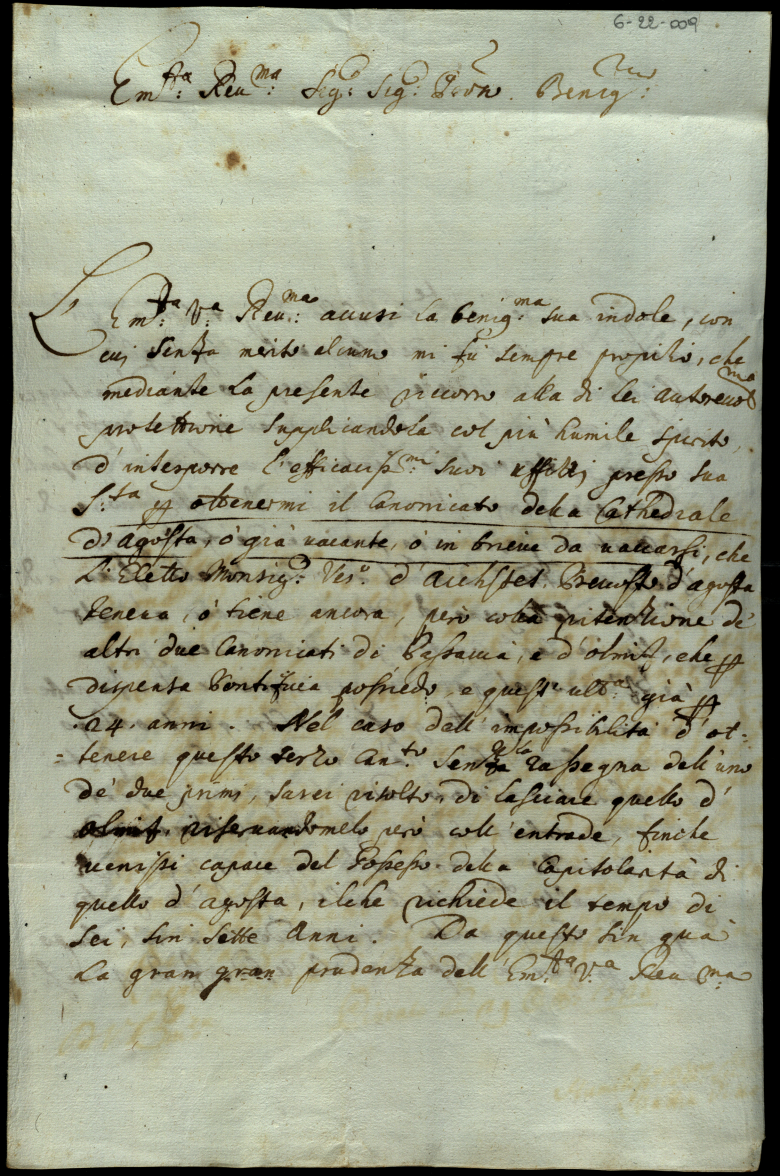 6-22-009
Em.ᵗᵃ Reu.ᵐᵃ Sig.ᵉ Sig.ᵉ Pròn Benig.ᵐᵒ
L'Em.ᵗᵃ V.ᵃ Reu.ᵐᵃ accusi la benig.ᵐᵃ sua indole, con
cuj senza merito alcuno mi fù sempre propitio, che
mediante la presente riccorro alla di lei autoreuolᵐᵃ
protettione supplicandola col più humile spirito,
d'interporre l'efficacissᵐⁱ suoi uffitij presso sua
S.ᵗᵃ p ottenermi il Canonicato della Cathedrale
d'agosta, ó già uacante, ó in brieue da uaccarsi, che
l'Eletto Monsig.ᵉ Ves.ᵒ d'Aichstet Preuosto d'agosta
teneua, ó tiene ancora, però colla ritenzione de
altri due Canonicati di Passauia, e d'olmiz, che p
dispensa Pontificia possiedo, e quest' ult.ᵒ già p
.24. anni. Nel caso dell'impossibilità d'ot-
-tenere questo terzo Can.ᵗᵒ senza la rassegna dell'uno
de' due primi, sarei risolto di lasciare quello d'
olmiz riseruandomelo però coll'entrade, finche
uenissi capace del Possesso della Capitolarità di
quello d'agosta, ilche richiede il tempo di
sei, sin sette Anni. Da questo sin quà
la gran gran prudenza dell'Em.ᵗᵃ V.ᵃ Reu.ᵐᵃ